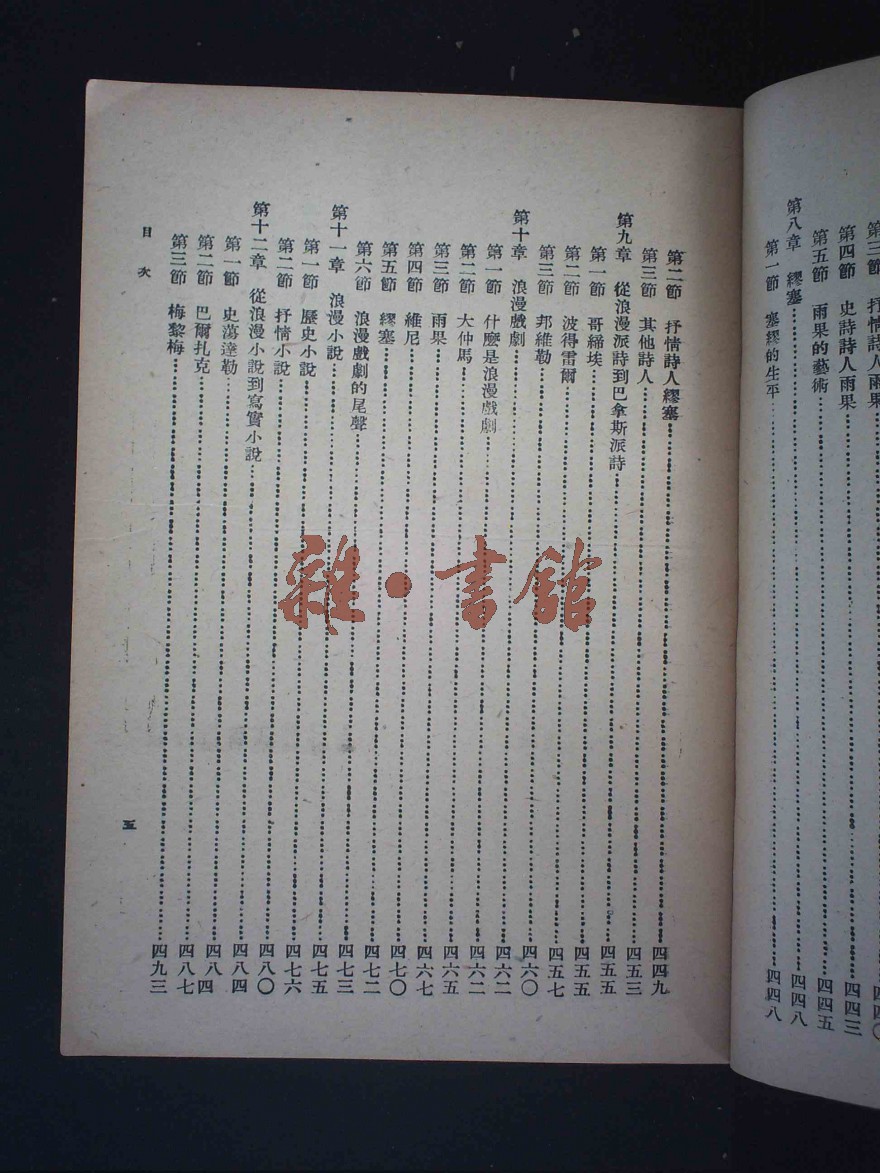 第三節 抒情詩人雨果……四四〇
第四節 史詩詩人雨果……四四三
第五節 雨果的藝術……四四五
第八章 繆塞……四四八
第一節 塞繆的生平……四四八
第二節 抒情詩人繆塞……四四九
第三節 其他詩人……四五三
第九章 從浪漫派詩到巴拿斯派詩……四五五
第一節 哥締埃……四五五
第二節 波得雷爾……四五七
第三節 邦維勒……四六〇
第十章 浪漫戲劇……四六二
第一節 什麼是浪漫戲劇……四六二
第二節 大仲馬……四六五
第三節 雨果……四六七
第四節 維尼……四七〇
第五節 繆塞……四七二
第六節 浪漫戲劇的尾聲……四七三
第十一章 浪漫小說……四七五
第一節 歷史小說……四七六
第二節 抒情小說……四八〇
第十二章 從浪漫小說到寫實小說……四八四
第一節 史蕩達勒……四八四
第二節 巴爾扎克……四八七
第三節 梅黎梅……四九三
目次
五
雜·書館